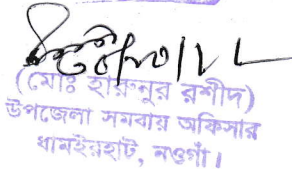 (মোঃ হারুনুর রশীদ)
উপজেলা সমবায় অফিসার
ধামইরহাট, নওগাঁ।